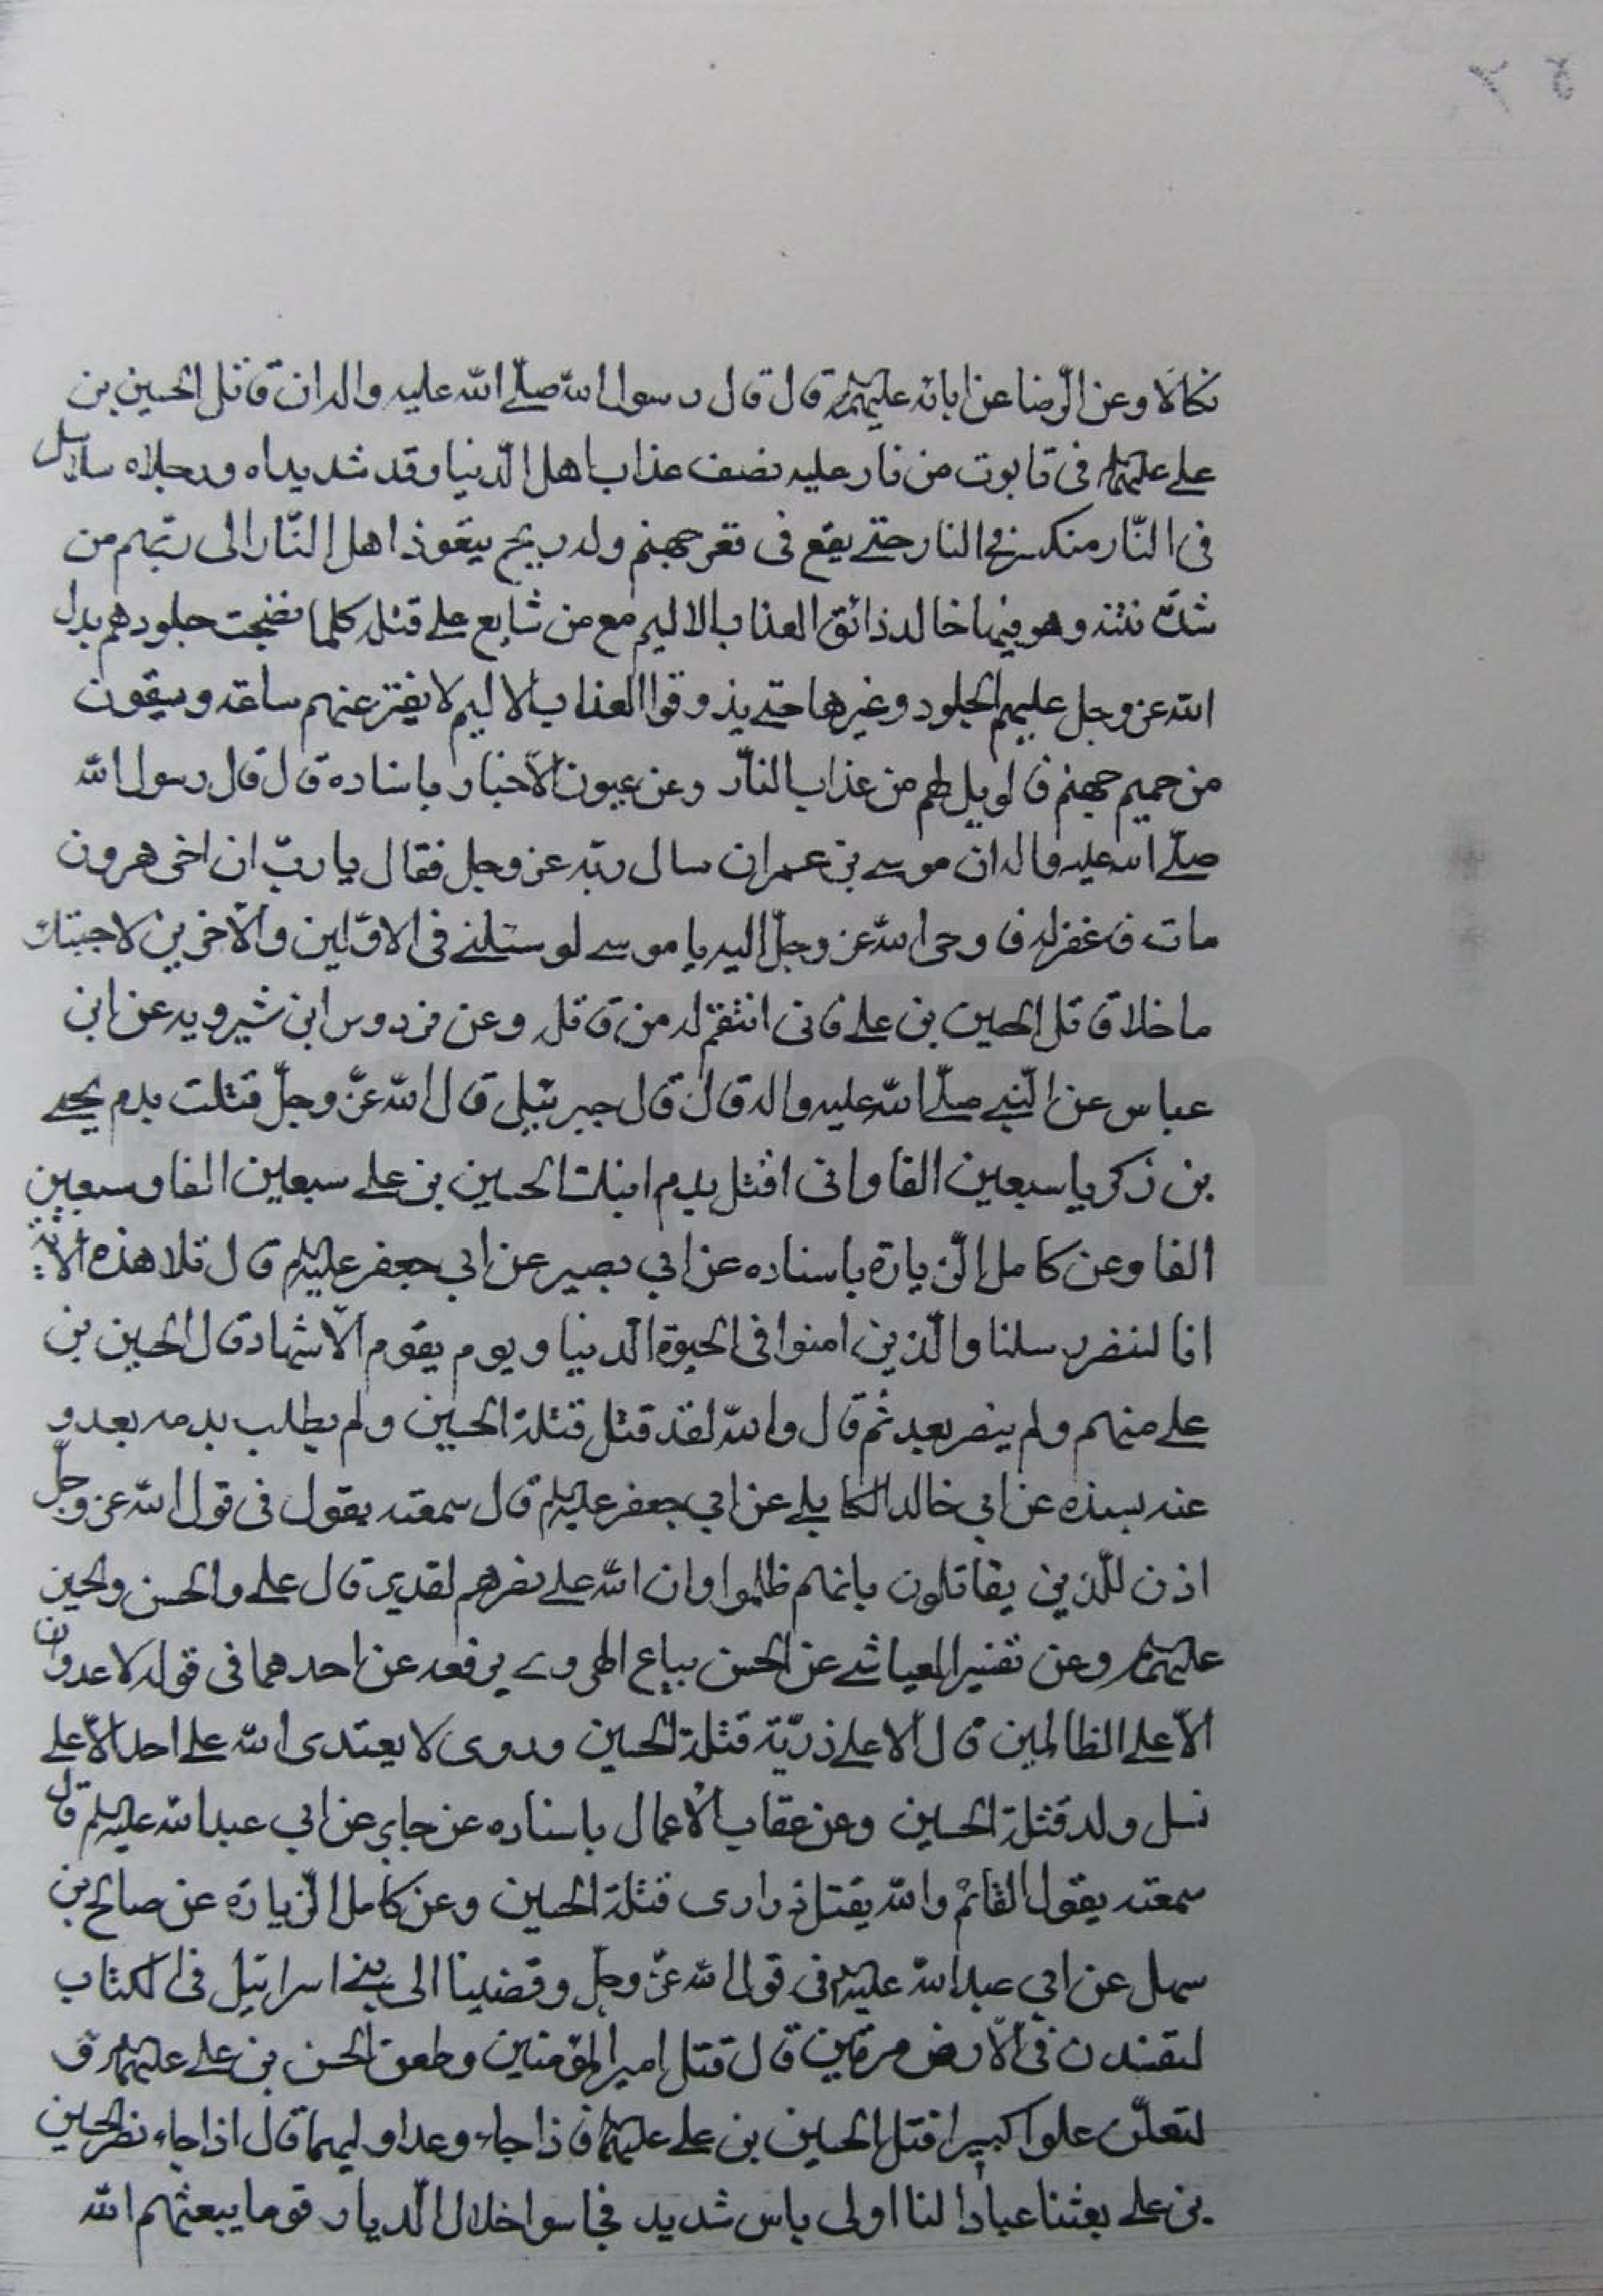 نكالا وعن الرّضا عن ابائه عليهم قال قال رسول اللّه صلّے اللّه عليه واله ان قاتل الحسين بن
علے عليهما فى تابوت من نار عليه نصف عذاب اهل الدّنيا وقد شد يداه ورجلاه سلاسل
فى النّار منكس فى النار حتے يقع فى قعر جهنم وله ريح يتعوذ اهل النّار الى ربّهم من
شدّة نتنه وهو فيها خالد ذائق العذاب الاليم مع من شايع علے قتله كلما نضجت جلودهم بدل
اللّه عز وجل عليهم الجلود وغيرها حتے يذوقوا العذاب الاليم لا يفتر عنهم ساعة ويسقون
من حميم جهنم فالويل لهم من عذاب النّار وعن عيون الاخبار باسناده قال قال رسول اللّه
صلّے اللّه عليه واله ان موسے بن عمران سال ربّه عز وجل فقال يا ربّ ان اخى هرون
مات فاغفر له فاوحى اللّه عز وجلّ اليه يا موسے لو سئلتنے فى الاوّلين والآخرين لاجبتك
ما خلا قاتل الحسين بن علے فانى انتقم له من قاتله وعن فردوس ابن شيرويه عن ابن
عباس عن النّبے صلّے اللّه عليه واله قال قال جبرئيل قال اللّه عزّ وجلّ قتلت بدم يحيے
بن زكريا سبعين الفا وانى اقتل بدم ابنك الحسين بن علے سبعين الفا وسبعين
الفا وعن كامل الزّيارة باسناده عن ابي بصير عن ابي جعفر عليه‌السلم قال تلا هذه الاية
انا لننصر رسلنا والّذين امنوا فى الحيوة الدنيا ويوم يقوم الاشهاد قال الحسين بن
علے منهم ولم ينصر بعد ثم قال واللّه لقد قتل قتلة الحسين ولم يطلب بدمه بعد و
عنه بسنده عن ابي خالد الكابلے عن ابي جعفر عليه‌السلم قال سمعته يقول فى قول اللّه عز وجلّ
اذن للّذين يقاتلون بانهم ظلموا وان اللّه علے نصرهم لقدير قال علے والحسن والحسين
عليهم وعن تفسير العياشے عن الحسن بياع الهروے يرفعه عن احدهما فى قوله لا عدوان
الّا علے الظالمين قال الا علے ذرّية قتلة الحسين وروى لا يعتدى اللّه علے احد الّا علے
نسل ولد قتلة الحسين وعن عقاب الاعمال باسناده عن جابر عن ابي عبد اللّه عليه‌السلم قال
سمعته يقول القائم واللّه يقتل ذرارى قتلة الحسين وعن كامل الزّيارة عن صالح بن
سهل عن ابي عبد اللّه عليه‌السلم فى قول اللّه عزّ وجلّ وقضينا الى بنے اسرائيل فى الكتاب
لتفسدن فى الارض مرتين قال قتل امير المؤمنين وطعن الحسن بن علے عليهما و
لتعلنّ علوا كبيرا قتل الحسين بن علے عليهما فاذا جاء وعد اوليهما قال اذا جاء نصر الحسين
بن علے بعثنا عبادا لنا اولى باس شديد فجاسوا خلال الدّيار قوما يبعثهم اللّه